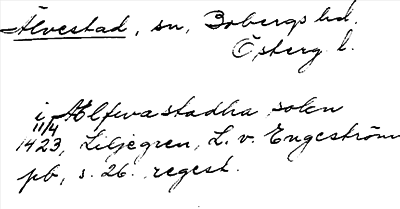 Älvestad, sn, Bobergs hd.
Österg l.
i Ælfwastadha sokn
11/4
1423, Liljegren, L. v. Engeström
pb, s. 26. regest.